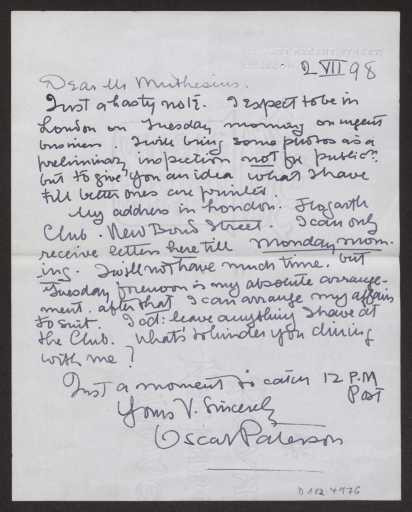 2 VII 98
Dear Mr Muthesius.
Just a hasty note. I expect to be in
London on Tuesday morning on urgent
business. I will bring some photos as a
preliminary inspection not for public?
but to give you an idea what I have
till better ones are printed
My address in London. Hogarth
Club. New Bond Street. I can only
receive letters here till Monday morn-
ing. I will not have much time. but
Tuesday forenoon is my absolute arrange-
ment. after that I can arrange my affairs
to suit. I cd: leave anything I have at
the Club. What's to hinder you dining
with me?
Just a moment to catch 12 P.M
Post
Yours V. Sincerely
Oscar Paterson
D 102-4976